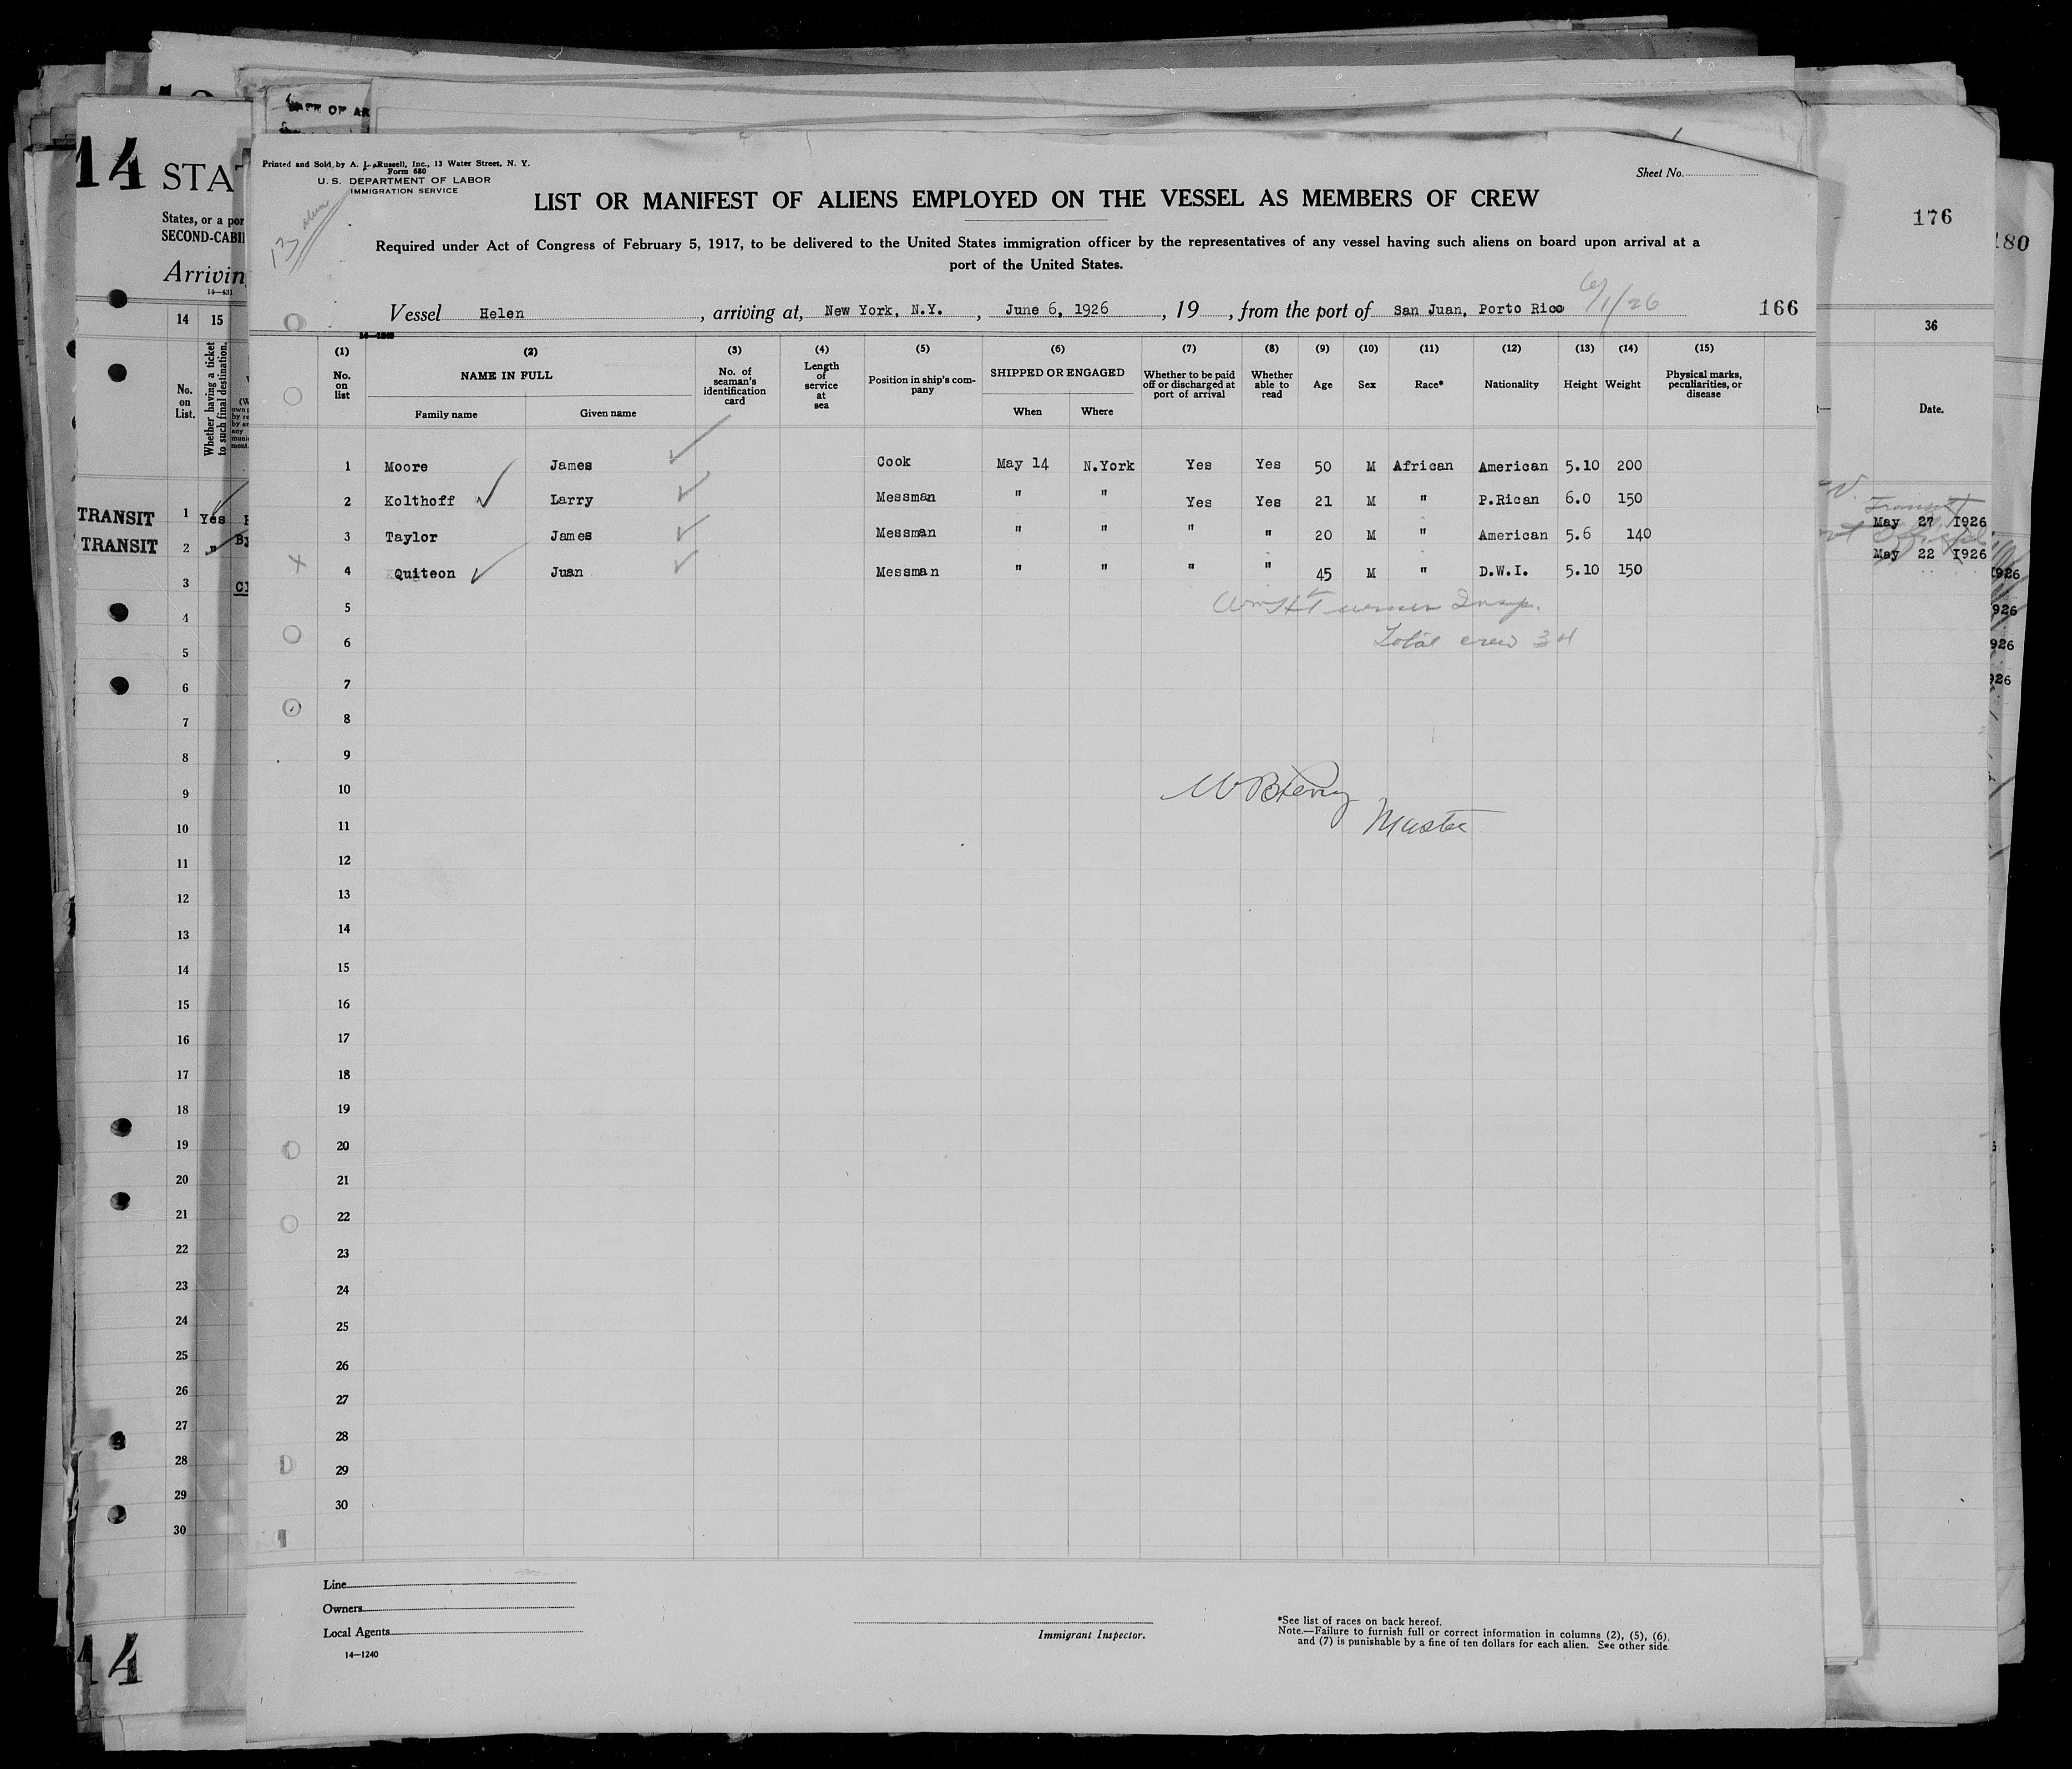 Printed and Sold by A. L. Russell, Inc., 13 Water Street, N. Y.
Form 680
U. S. DEPARTMENT OF LABOR
IMMIGRATION SERVICE
Sheet No.
LIST OR MANIFEST OF ALIENS EMPLOYED ON THE VESSEL AS MEMBERS OF CREW
Required under Act of Congress of February 5, 1917, to be delivered to the United States immigration officer by the representatives of any vessel having such aliens on board upon arrival at a
port of the United States.
6/1/26
Vessel Helen, arriving at, New York, N.Y., June 6, 1926, 19, from the port of San Juan, Porto Rico 166
(1) (2) (3) (4) (5) (6) (7) (8) (9) (10) (11) (12) (13) (14) (15)
No. on list NAME IN FULL Family name Given name No. of seaman's identification card Length of service at sea Position in ship's company SHIPPED OR ENGAGED When Where Whether to be paid off or discharged at port of arrival Whether able to read Age Sex Race* Nationality Height Weight Physical marks, peculiarities, or disease
1 Moore James Cook May 14 N.York Yes Yes 50 M African American 5.10 200
2 Kolthoff Larry Messman " " Yes Yes 21 M " P.Rican 6.0 150
3 Taylor James Messman " " " " 20 M " American 5.6 140
4 Quiteon Juan Messman " " " " 45 M " D.W.I. 5.10 150
5
Turner Insp.
6
Total crew 34
7
8
9
10
11
Master
12
13
14
15
16
17
18
19
20
21
22
23
24
25
26
27
28
29
30
Line
Owners
Local Agents
14—1240
Immigrant Inspector.
*See list of races on back hereof.
Note.—Failure to furnish full or correct information in columns (2), (5), (6),
and (7) is punishable by a fine of ten dollars for each alien. See other side
14 STA
States, or a por
SECOND-CABI
Arrivin
14—431
14 15
No. on List.
Whether having a ticket to such final destination.
TRANSIT 1 Yes
TRANSIT 2 "
3
4
5
6
7
8
9
10
11
12
13
14
15
16
17
18
19
20
21
22
23
24
25
26
27
28
29
30
14
176
180
36
Date.
Transit
May 27 1926
May 22 1926
1926
926
926
926